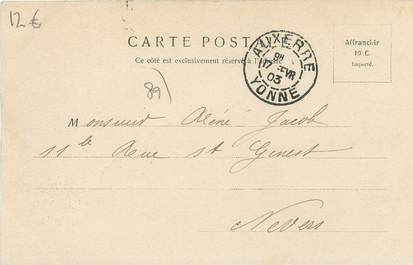 12 €
CARTE POSTALE
Ce côté est exclusivement réservé à l'adresse
Affranchir
10 C.
AUXERRE
FEVR
03
YONNE
89)
Monsieur Jacob
11 Rue St Genest
Nevers